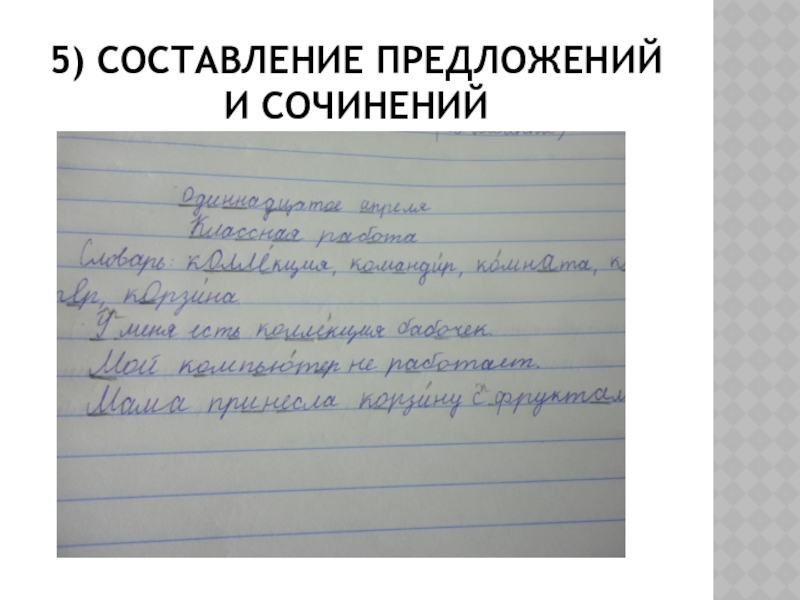 5) СОСТАВЛЕНИЕ ПРЕДЛОЖЕНИЙ
И СОЧИНЕНИЙ
Одиннадцатое апреля
Классная работа
Словарь: коллéкция, командúр, кóмната, к
тер, корзúна
У меня есть коллéкция бабочек.
Мой компью́тер не работает.
Мама принесла корзúну с фруктам